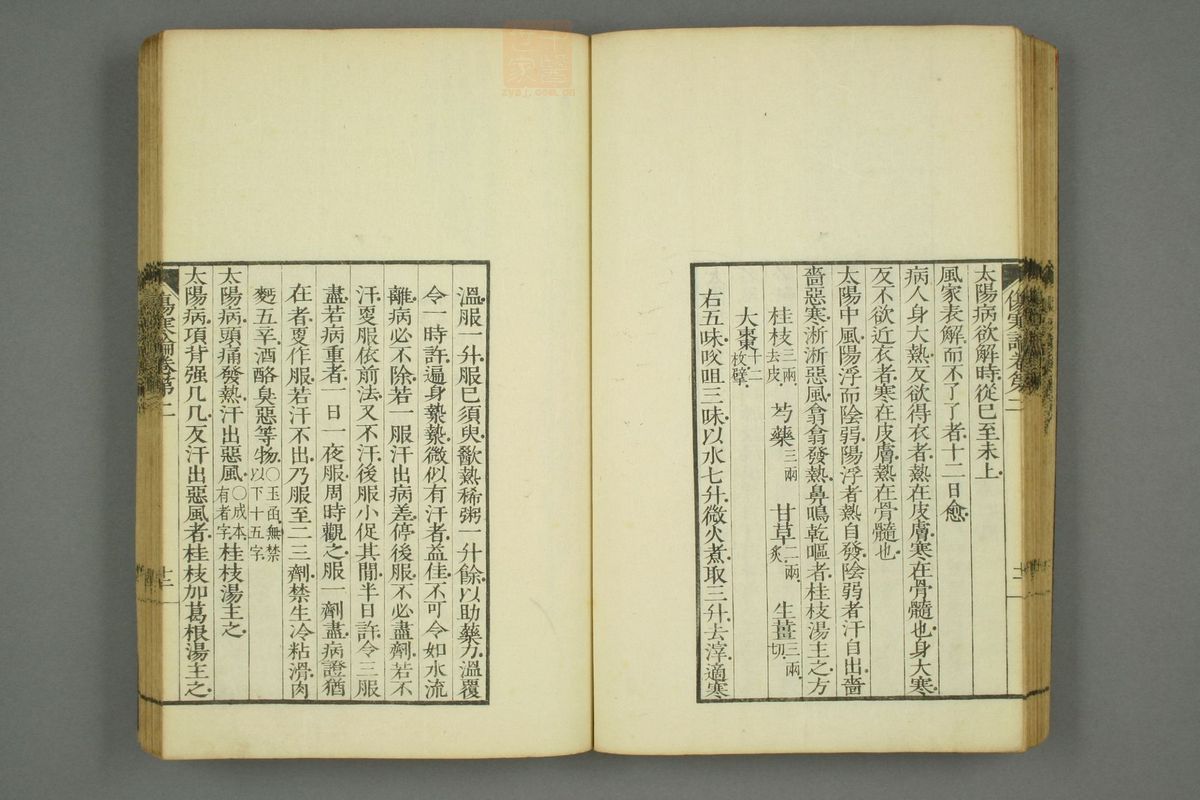 太陽病欲解時從巳至未上
風家表解而不了了者十二日愈
病人身大熱反欲得衣者熱在皮膚寒在骨髓也身大寒
反不欲近衣者寒在皮膚熱在骨髓也
太陽中風陽浮而陰弱陽浮者熱自發陰弱者汗自出嗇
嗇惡寒淅淅惡風翕翕發熱鼻鳴乾嘔者桂枝湯主之方
桂枝三兩去皮 芍藥三兩 甘草二兩炙 生薑三兩切
大棗十二枚擘
右五味㕮咀三味以水七升微火煮取三升去滓適寒
溫服一升服已須臾歠熱稀粥一升餘以助藥力溫覆
令一時許遍身漐漐微似有汗者益佳不可令如水流
離病必不除若一服汗出病差停後服不必盡劑若不
汗更服依前法又不汗後服小促其間半日許令三服
盡若病重者一日一夜服周時觀之服一劑盡病證猶
在者更作服若汗不出乃服至二三劑禁生冷粘滑肉
麪五辛酒酪臭惡等物〇玉函無禁以下十五字
太陽病頭痛發熱汗出惡風〇成本有者字桂枝湯主之
太陽病項背强几几反汗出惡風者桂枝加葛根湯主之
傷寒論卷第二
十二
zysj.com.cn